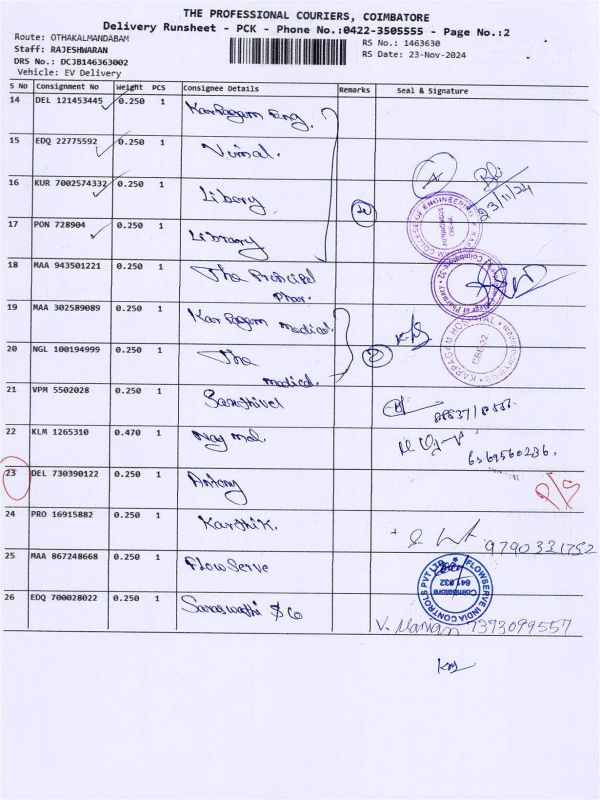 THE PROFESSIONAL COURIERS, COIMBATORE
Delivery Runsheet - PCK - Phone No.:0422-3505555 - Page No.:2
Route: OTHAKALMANDABAM
RS No.: 1463630
Staff: RAJESHWARAN
RS Date: 23-Nov-2024
DRS No.: DCJB146363002
Vehicle: EV Delivery
S No Consignment No Weight PCS Consignee Details Remarks Seal & Signature
14 DEL 121453445 0.250 1 Karpagam Eng.
15 EDQ 22775592 0.250 1 Vimal.
16 KUR 7002574332 0.250 1 Library
17 PON 728904 0.250 1 Library
COLLEGE OF ENGINEERING
AUTONOMOUS
18 MAA 943501221 0.250 1 The Principal
Phar.
College of Pharmacy Coimbatore-32
19 MAA 302589089 0.250 1 Karpagam medical.
KARPAGAM HOSPITAL
CBE-32
20 NGL 100194999 0.250 1 The
medical.
21 VPM 5502028 0.250 1 Sansthivel
22 KLM 1265310 0.470 1 Nag mal.
6369560236.
23 DEL 730390122 0.250 1 Antony
24 PRO 16915882 0.250 1 Karthik.
9790331752
25 MAA 867248668 0.250 1 FlowServe
FLOWSERVE INDIA CONTROLS PVT LTD
Coimbatore
641 032
26 EDQ 700028022 0.250 1 Saraswathi & Co
7373099557